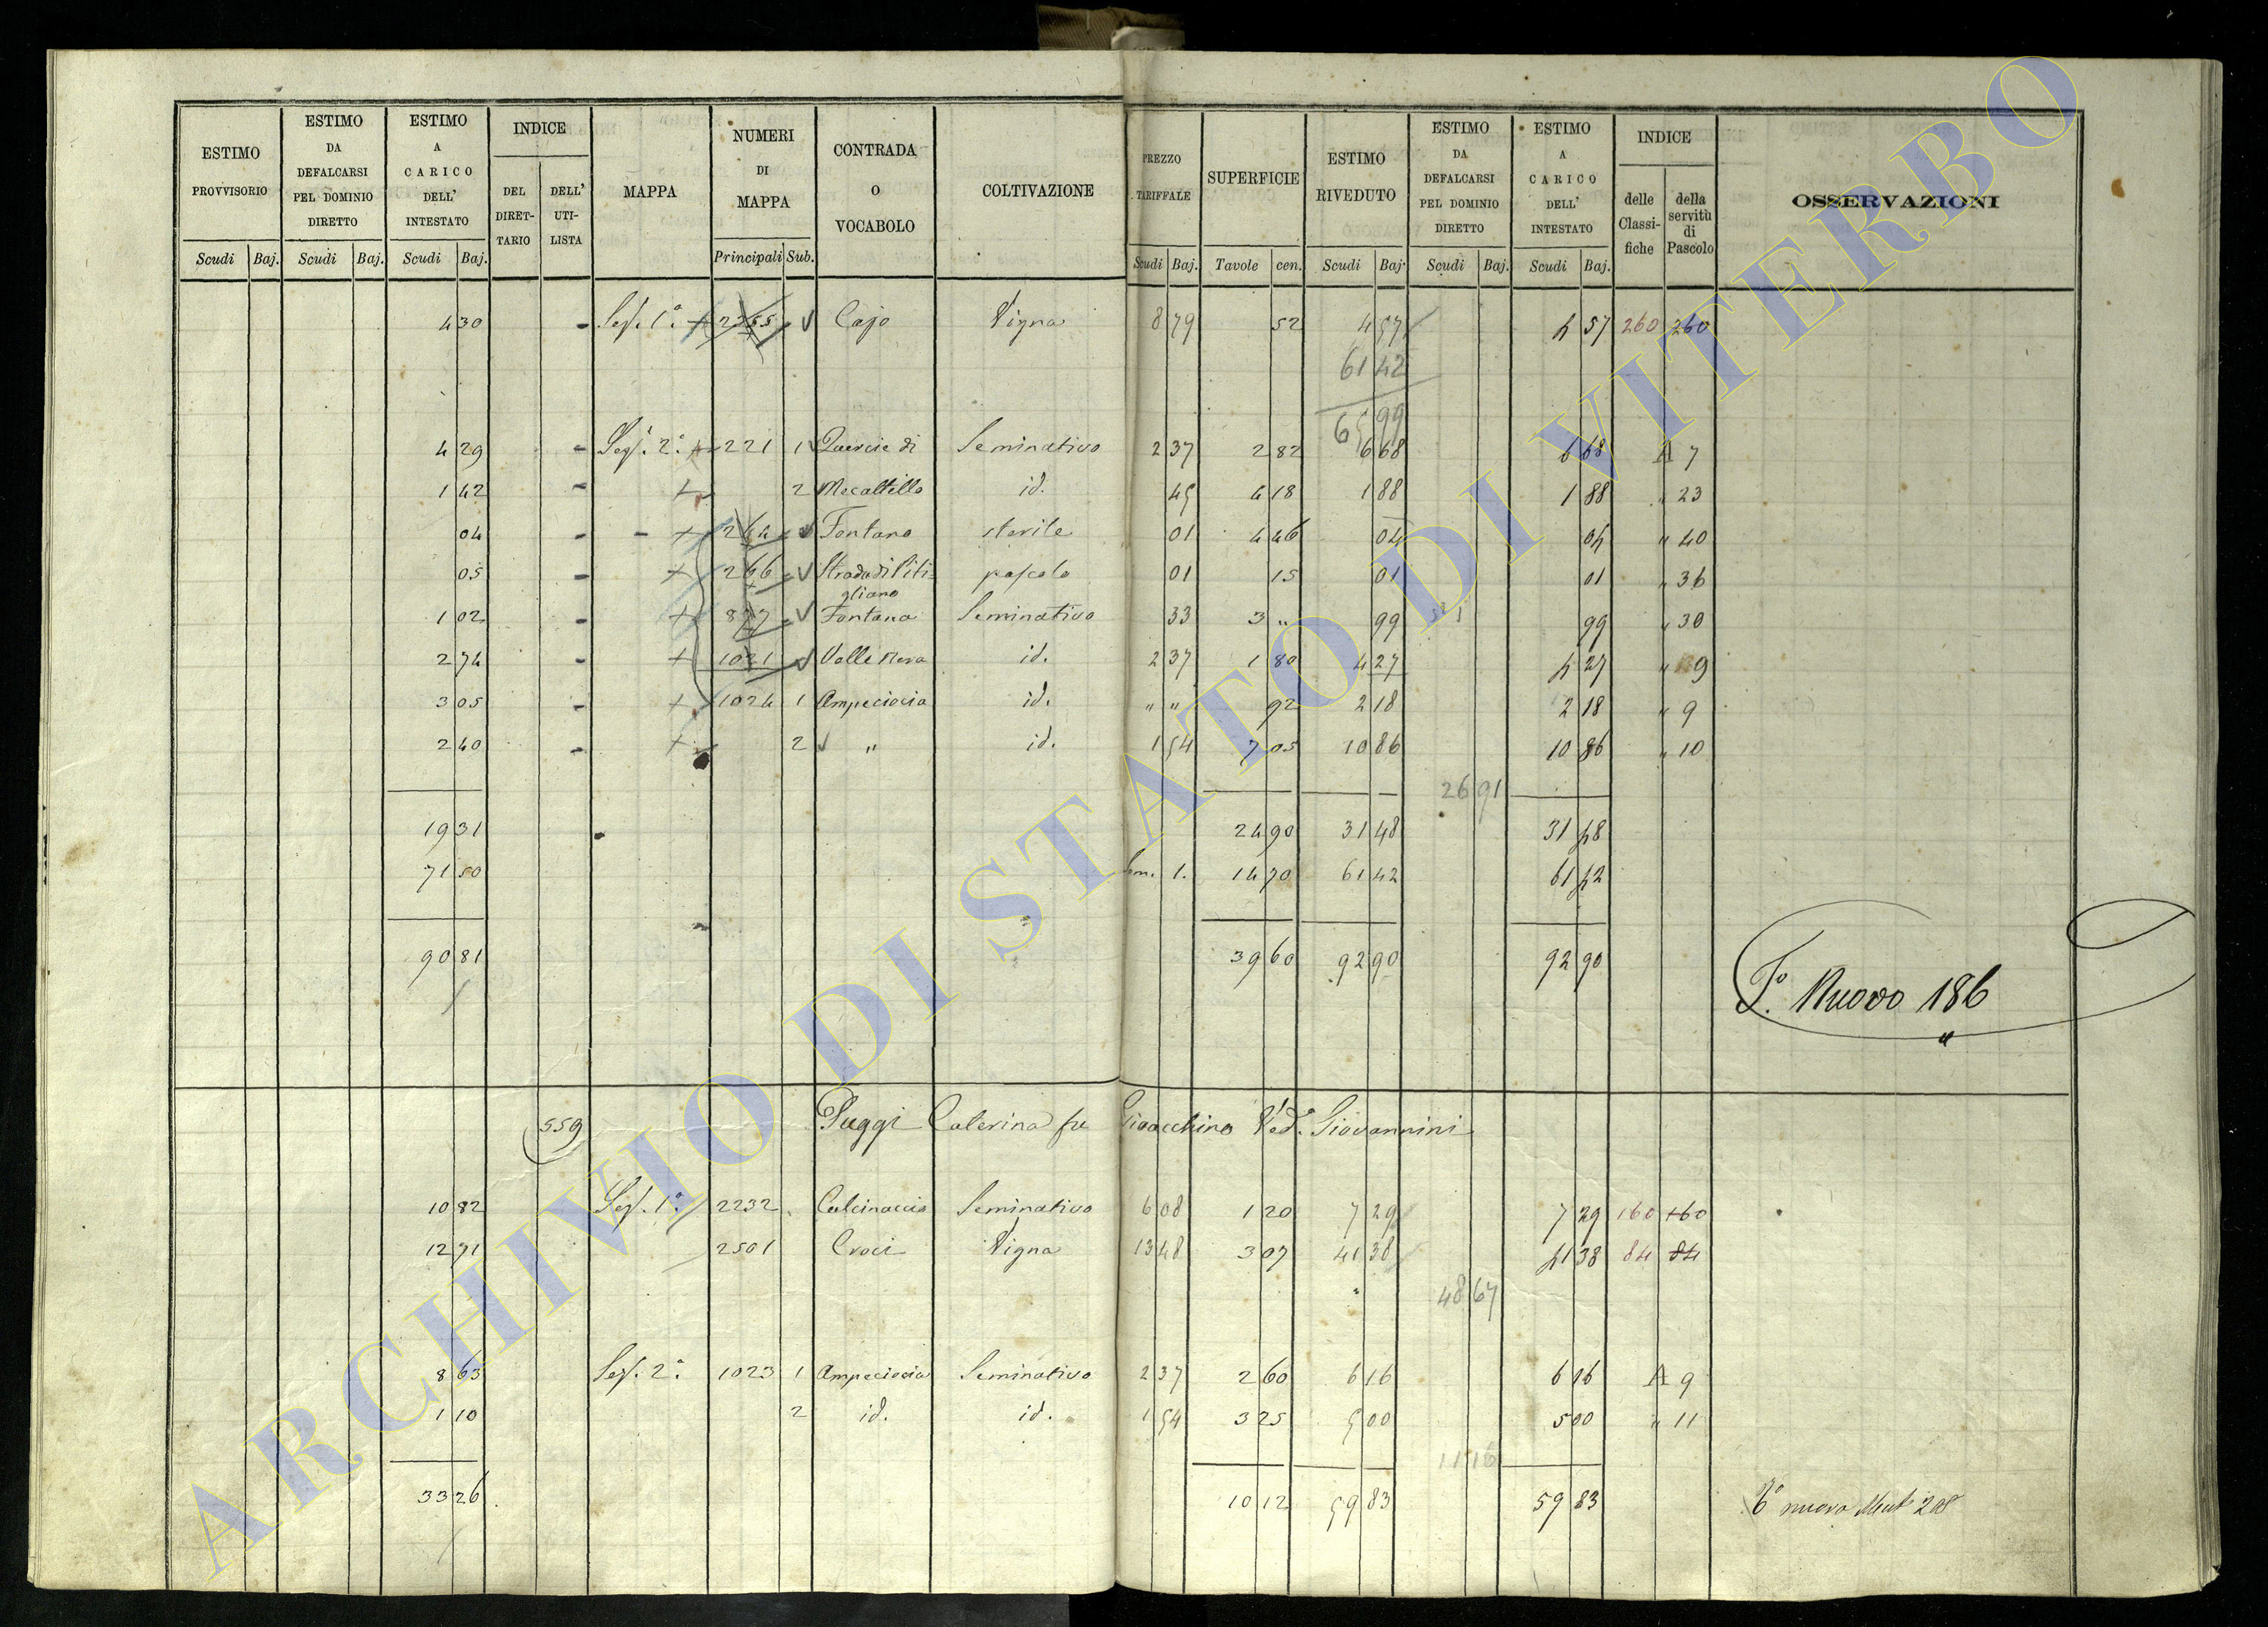 ESTIMO PROVVISORIO | ESTIMO DA DEFALCARSI PEL DOMINIO DIRETTO | ESTIMO A CARICO DELL' INTESTATO | INDICE DEL DIRETTARIO | DELL' UTILISTA | MAPPA | NUMERI DI MAPPA | CONTRADA O VOCABOLO | COLTIVAZIONE | PREZZO TARIFFALE | SUPERFICIE | ESTIMO RIVEDUTO | ESTIMO DA DEFALCARSI PEL DOMINIO DIRETTO | ESTIMO A CARICO DELL' INTESTATO | INDICE delle Classifiche | della servitù di Pascolo | OSSERVAZIONI
Scudi | Baj. | Scudi | Baj. | Scudi | Baj. | Principali | Sub. | Scudi | Baj. | Tavole | cen. | Scudi | Baj. | Scudi | Baj. | Scudi | Baj.
4 30 | Sez. 1ª | 2255 | Cajo | Vigna | 8 79 | 52 | 4 57 | 4 57 | 260 | 260
61 42
65 99
4 29 | Sez. 2ª | 221 | 1 | Quercie di | Seminativo | 2 37 | 2 82 | 6 68 | 6 68 | A 7
1 42 | 2 | Mecaltello | id. | 45 | 4 18 | 1 88 | 1 88 | " 23
04 | 264 | Fontana | sterile | 01 | 4 46 | 04 | 04 | " 40
05 | 266 | Strada di Pitigliano | pascolo | 01 | 15 | 01 | 01 | " 36
1 02 | 877 | Fontana | Seminativo | 33 | 3 " | 99 | 99 | " 30
2 74 | 1021 | Valle Nera | id. | 2 37 | 1 80 | 4 27 | 4 27 | " 9
3 05 | 1024 | 1 | Ampeciocia | id. | " " | 92 | 2 18 | 2 18 | " 9
2 40 | 2 | " | id. | 1 54 | 7 05 | 10 86 | 10 86 | " 10
26 91
19 31 | 24 90 | 31 48 | 31 48
71 50 | 1. | 14 70 | 61 42 | 61 42
90 81 | 39 60 | 92 90 | 92 90
Fº. Nuovo 186
559 | Puggi Caterina fu Gioacchino Ved.ª Giovannini
10 82 | Sez. 1ª | 2232 | Calcinaccio | Seminativo | 6 08 | 1 20 | 7 29 | 7 29 | 160 | 160
12 71 | 2501 | Croci | Vigna | 13 48 | 3 07 | 41 38 | 41 38 | 84 | 84
48 67
8 63 | Sez. 2ª | 1023 | 1 | Ampeciocia | Seminativo | 2 37 | 2 60 | 6 16 | 6 16 | A 9
1 10 | 2 | id. | id. | 1 54 | 3 25 | 5 00 | 5 00 | " 11
11 16
33 26 | 10 12 | 59 83 | 59 83
Fº nuovo 208
ARCHIVIO DI STATO DI VITERBO